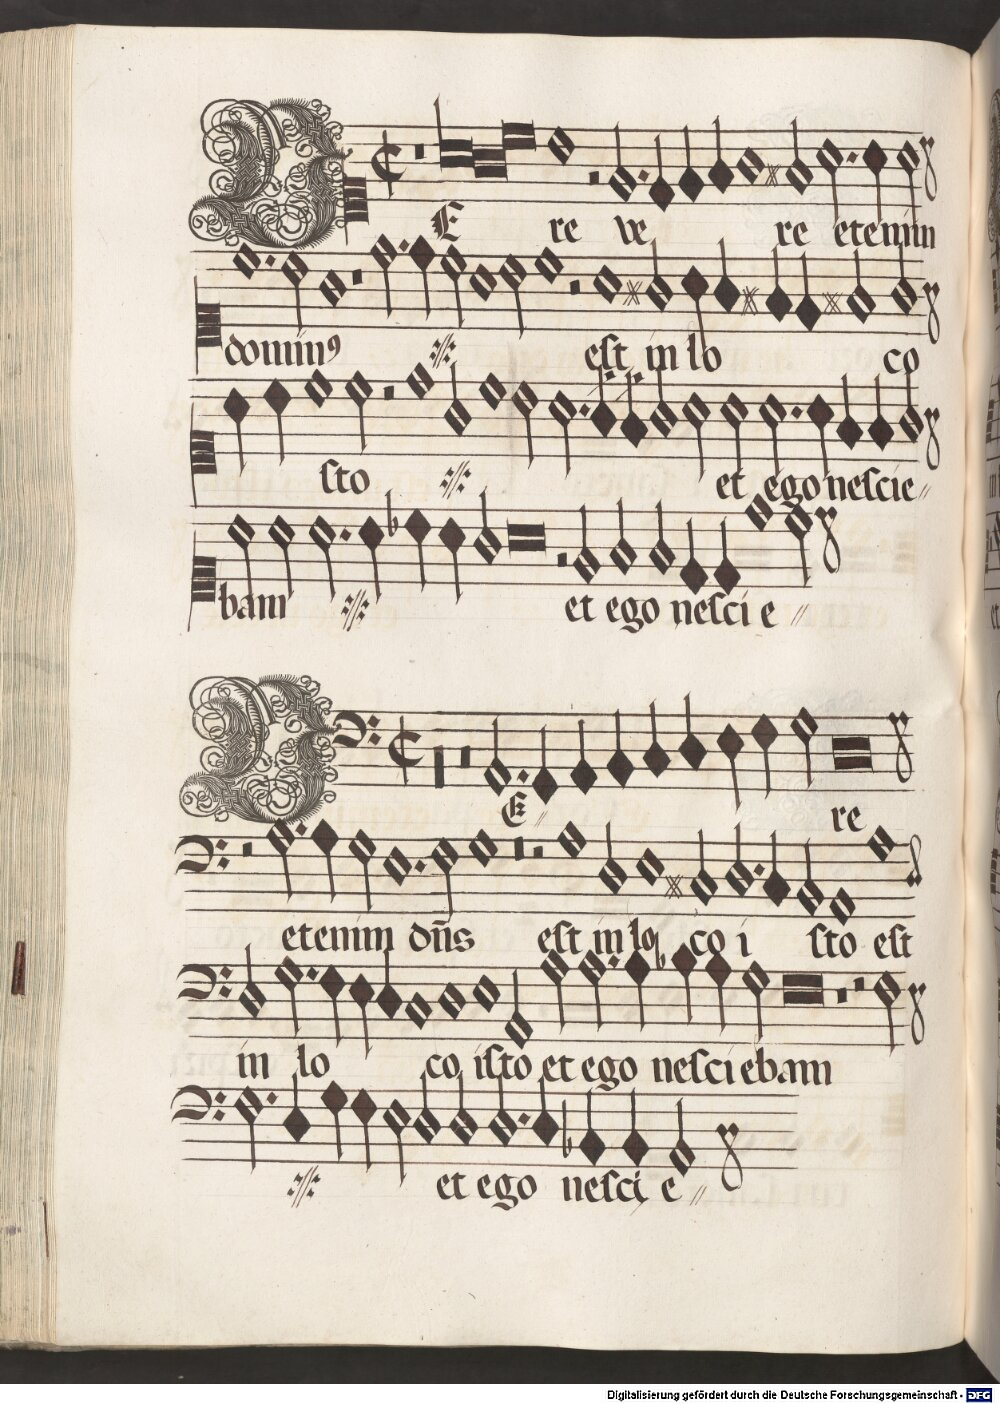 VE re ve re etenim
dominꝰ est in lo co
sto et ego nescie
bam et ego nesci e
VE re
etenim dn̄s est in lo co i sto est
in lo co isto et ego nesci ebam
et ego nesci e
Digitalisierung gefördert durch die Deutsche Forschungsgemeinschaft - DFG